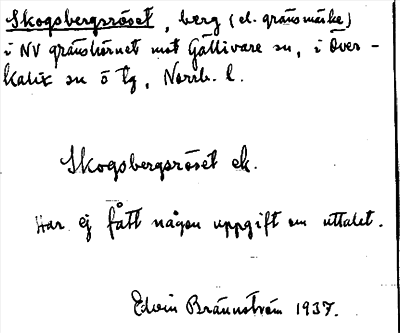 Skogsbergsröset, berg (el. gränsmärke)
i NV gränshörnet mot Gällivare sn, i Över-
kalix sn o tg, Norrb. l.
Skogsbergsröset ek.
Har ej fått någon uppgift om uttalet.
Edvin Brännström 1937.